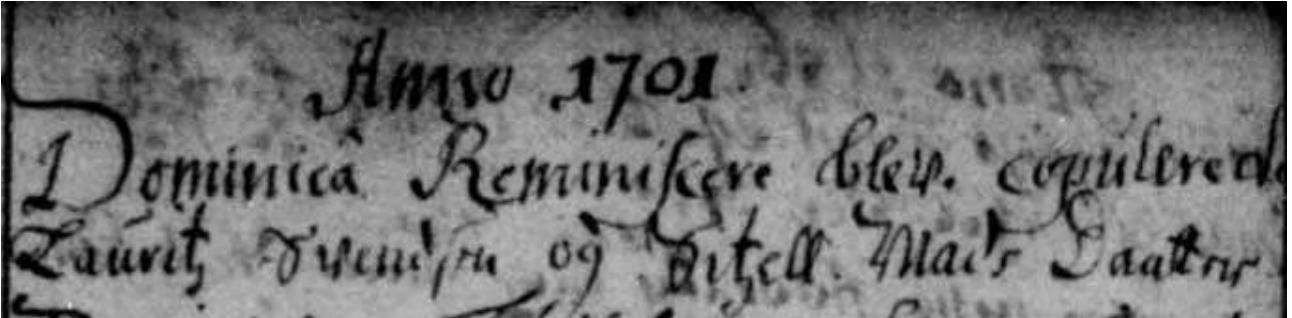 Anno 1701.
Dominicâ Reminiscere blev. copulerede
Lauritz Svendsen og Sitzell. Mads Daatter